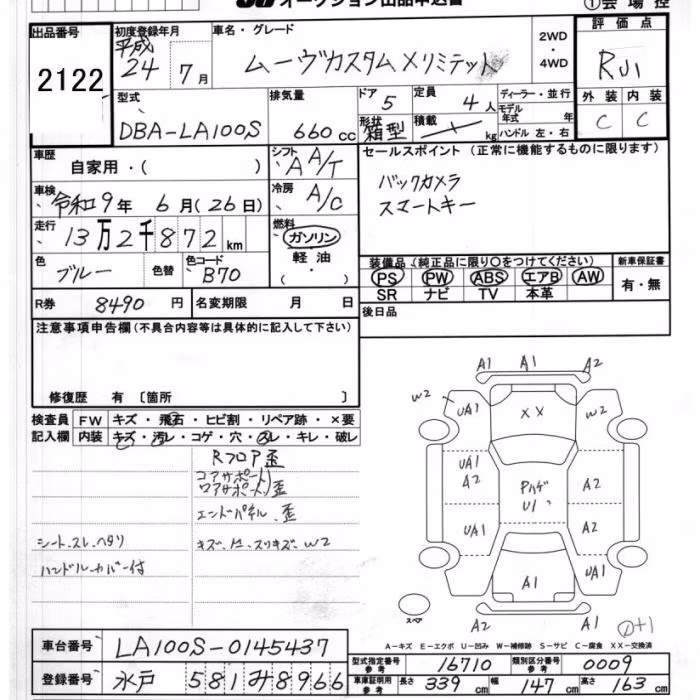 オークション出品申込書
①会場控
出品番号
2122
初度登録年月
平成
24 7月
車名・グレード
ムーヴカスタム Xリミテット
2WD
・
4WD
評価点
RJ1
外装 内装
C C
型式
DBA-LA100S
排気量
660 cc
ドア 5
形状 箱型
定員 4人
積載 kg
ディーラー・並行
モデル年式 年
ハンドル 左・右
車歴
自家用・( )
シフト A A/T
セールスポイント (正常に機能するものに限ります)
バックカメラ
スマートキー
車検
令和9年 6月(26日)
冷房 A/C
走行
13万2千872 km
燃料
ガソリン
軽油
( ・ )
色 ブルー
色替
色コード B70
装備品 (純正品に限り○をつけてください)
PS PW ABS エアB AW
SR ナビ TV 本革
新車保証書
有・無
R券 8490 円
名変期限 月 日
後日品
注意事項申告欄(不具合内容等は具体的に記入して下さい)
修復歴 有 〔箇所 〕
検査員記入欄
FW キズ・飛石・ヒビ割・リペア跡・×要
内装 キズ・汚レ・コゲ・穴・スレ・キレ・破レ
Rフロア歪
コアサポート
ロアサポート歪
エンドパネル歪
シート、スレ、ヘタリ
キズ、凹、スリキズ、W2
ハンドルカバー付
A1 A1 A2
W2 UA1 XX W2
UA1 A2
Pハゲ
U1
A2
UA1 A2
A1 UA1
スペア
A2 A2 A1
①+1
A-キズ E-エクボ U-凹み W-補修跡 S-サビ C-腐食 XX-交換済
車台番号 LA100S-0145437
登録番号 水戸 581み8966
型式指定番号 参考 16710
類別区分番号 参考 0009
車庫証明用 参考 長さ 339 cm 幅 147 cm 高さ 163 cm